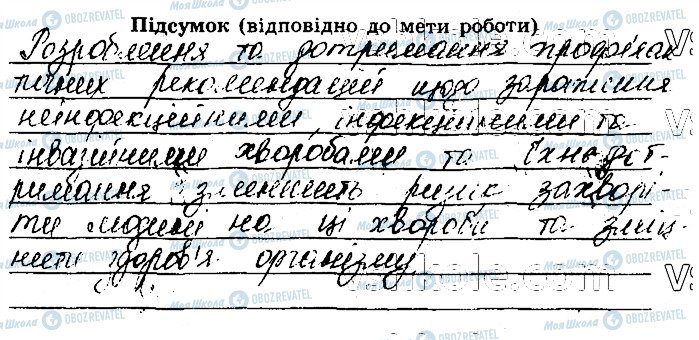 Підсумок (відповідно до мети роботи)
Розроблення та дотримання профілак
тичних рекомендацій щодо зараження
неінфекційними, інфекційними та
інвазійними хворобами та їхнь дот-
римання зменшить ризик захворі-
ти людині на ці хвороби та зміц-
нити здоров'я організму